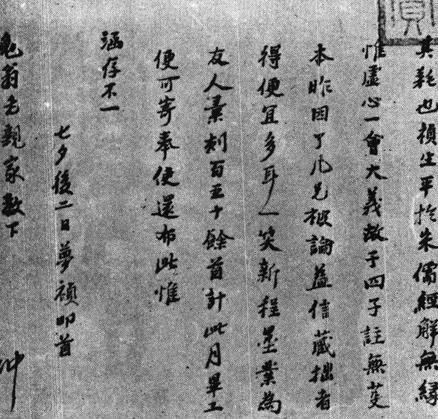 其耗也禎生平於宋儒經解無緣
惟虛心一會大義故于四子註無芟
本昨因了凡兄被論益信藏拙者
得便宜多耳一笑新程墨業為
友人彙刻百五十餘首計此月畢工
便可寄奉使還布此惟
涵存不一
七夕後二日夢禎叩首
翁老親家下